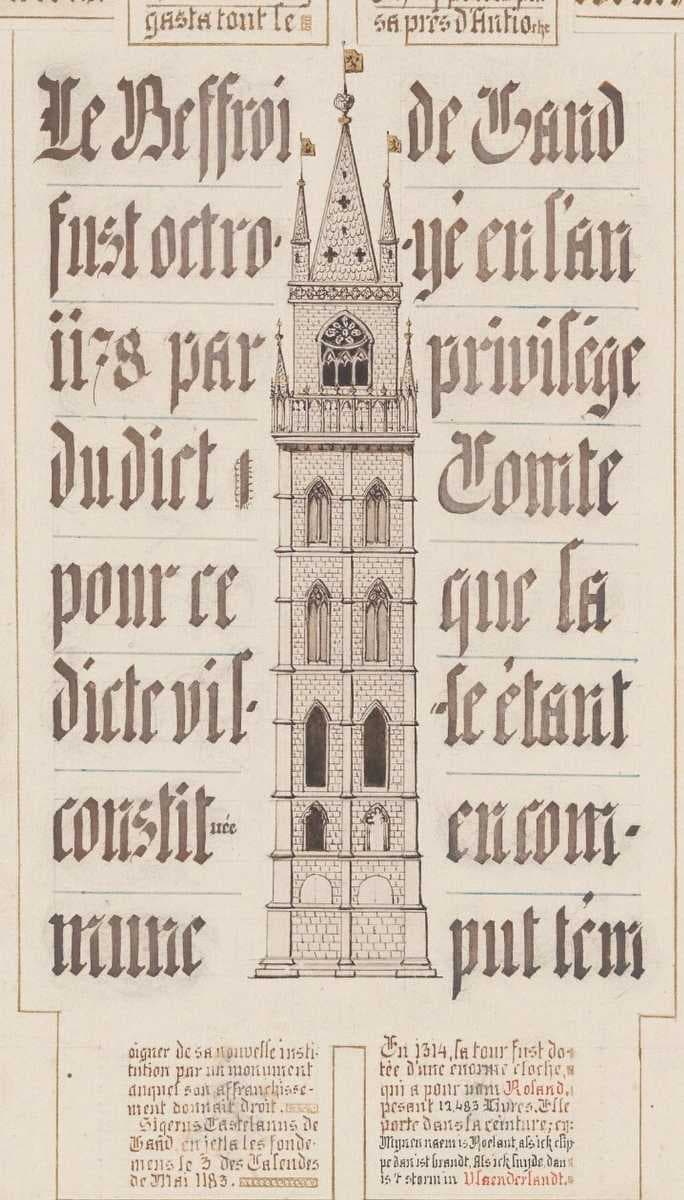 gasta tout le
sa près d'Antioche
Le Beffroi de Gand
fust octro- -yé en l'an
1178 par privilége
du dict Comte
pour ce que la
dicte vil- -le étant
constituée en com-
mune put tém
oigner de sa nouvelle insti-
tution par un monument
auquel son affranchisse-
ment donnait droit.
Sigerus Castelanus de
Gand en jetta les fonde-
mens le 3 des Calendes
de Mai 1183.
En 1314, la tour fust do-
tée d'une enorme cloche,
qui a pour nom Roland,
pesant 12,483 Livres. Elle
porte dans la ceinture;
Mynen naem is Roelant, als ick clip
pe dan ist brandt, Als ick luyde, dan
is 't storm in Vlaenderlandt.